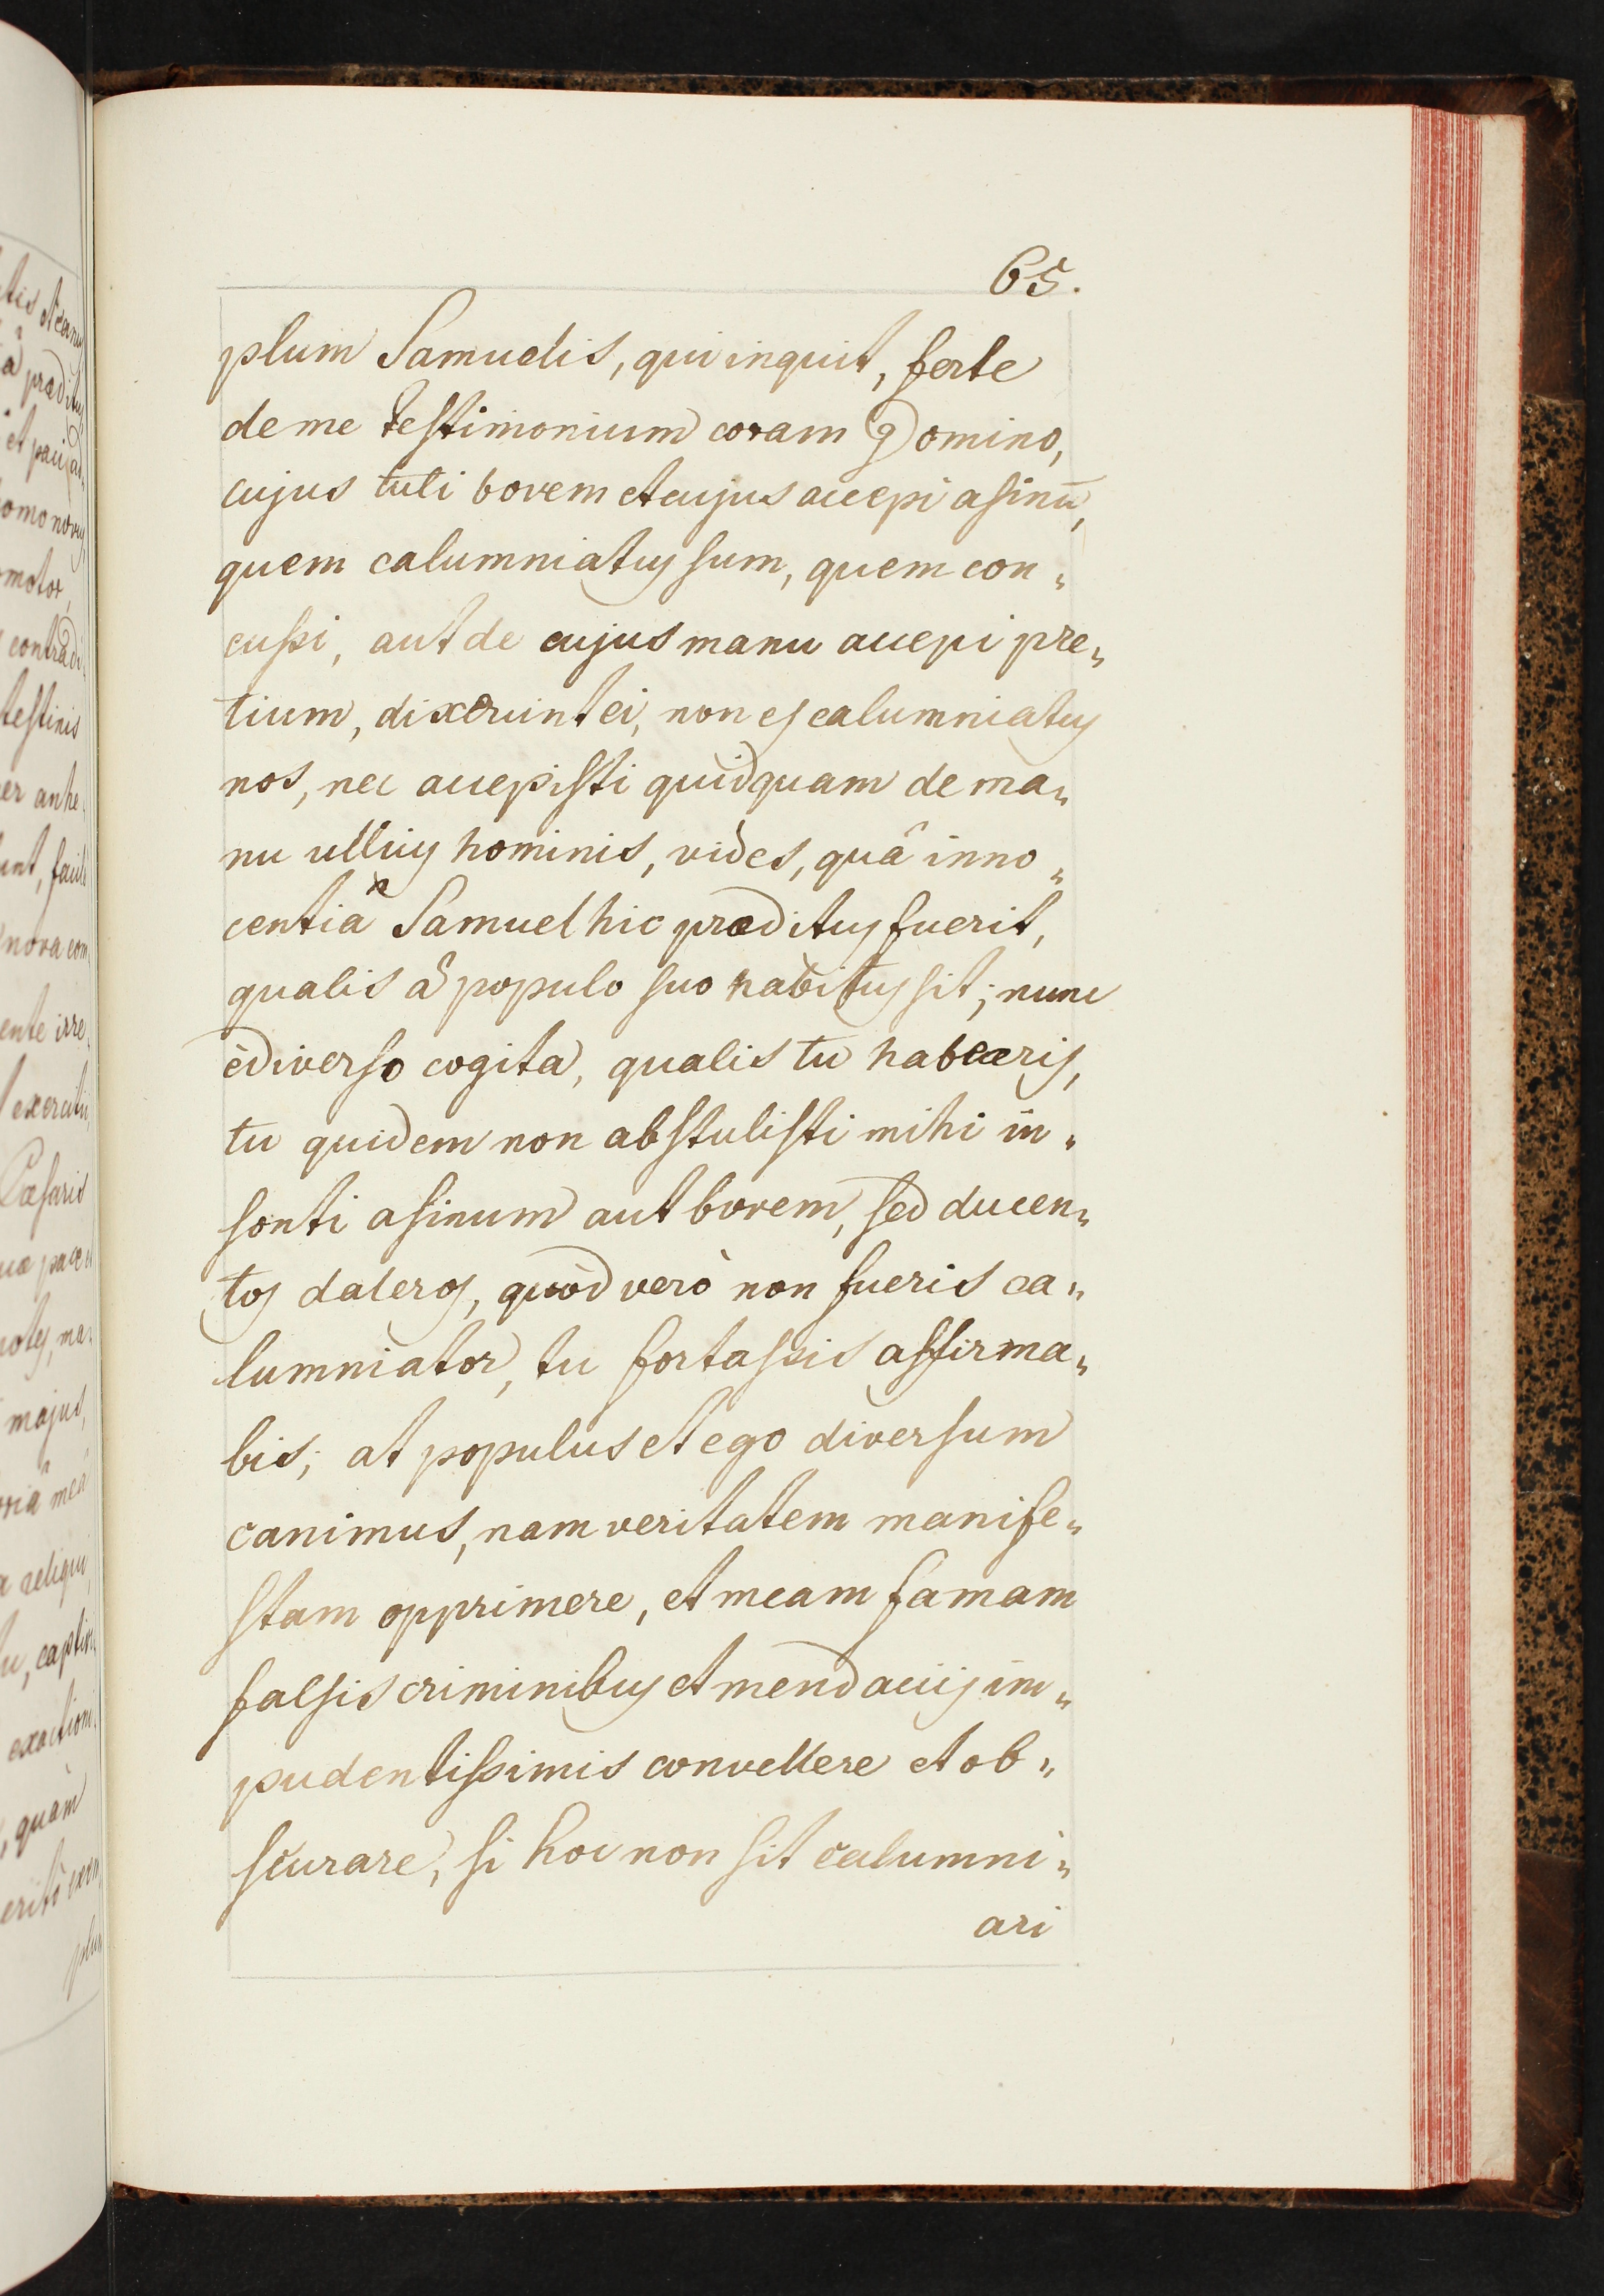 65.
plum Samuelis, qui inquit, ferte
de me testimonium coram Domino,
cujus tuli bovem et cujus accepi asinū,
quem calumniatus sum, quem con„
cussi, aut de cujus manu accepi pre„
tium, dixerunt ei, non es calumniatus
nos, nec accepisti quidquam de ma„
nu ullius hominis, vides, quâ inno„
centiâ Samuel hic præditus fuerit,
qualis â populo suo habitus sit; nunc
è diverso cogita, qualis tu habearis,
tu quidem non abstulisti mihi in„
sonti asinum aut bovem, sed ducen„
tos daleros, quòd verò non fueris ca„
lumniator, tu fortassis affirma„
bis; at populus et ego diversum
canimus, nam veritatem manife„
stam opprimere, et meam famam
falsis criminibus et mendaciis im„
pudentissimis convellere et ob„
scurare, si hoc non sit calumni„
ari